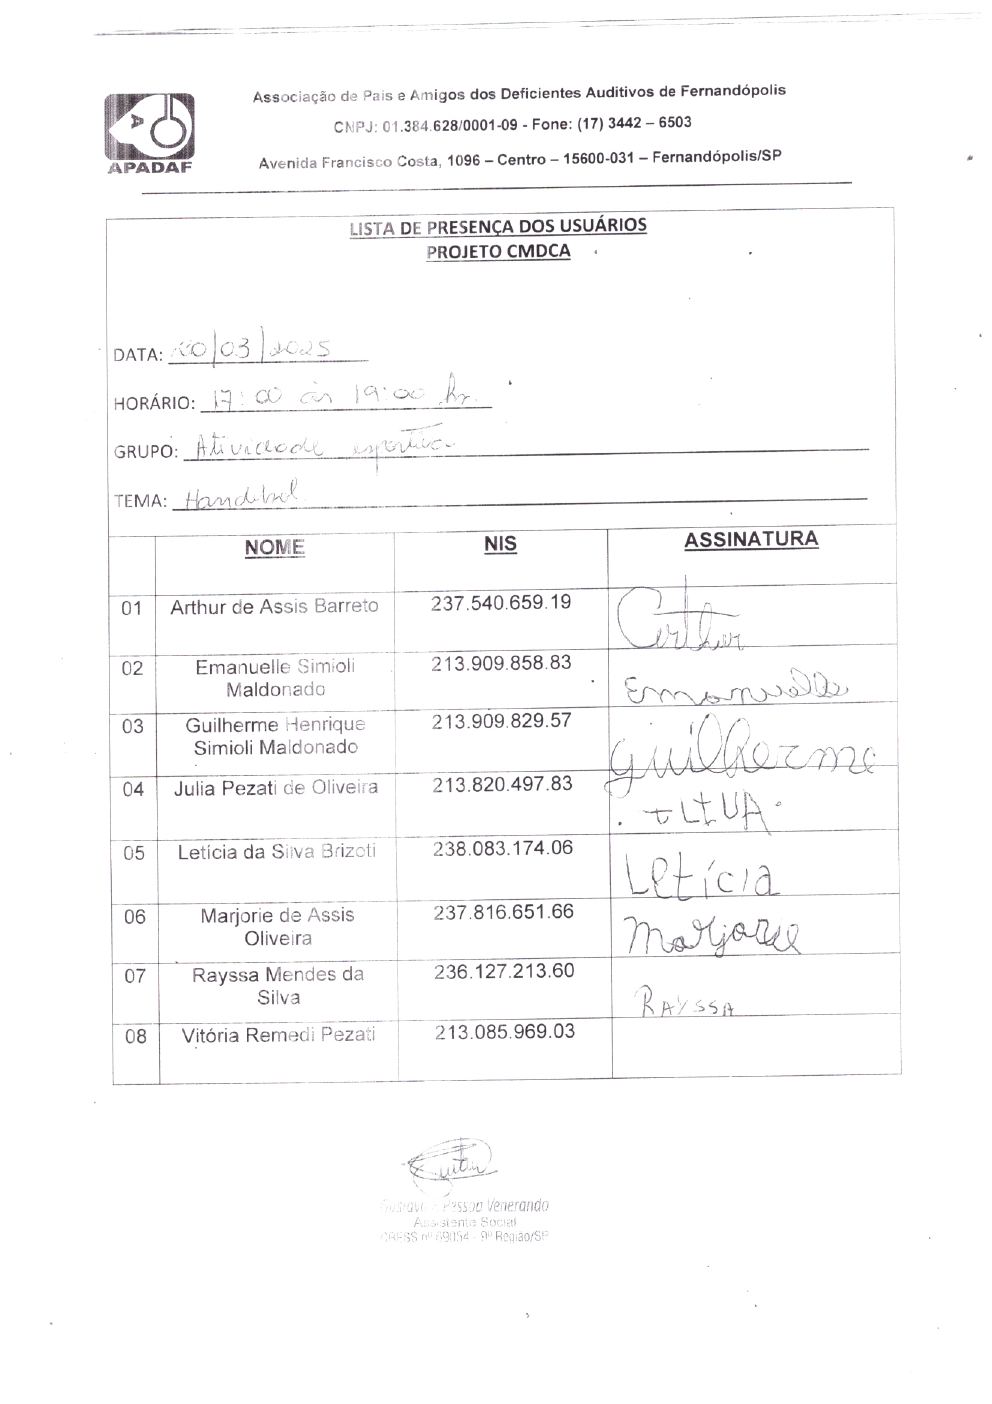 Associação de Pais e Amigos dos Deficientes Auditivos de Fernandópolis
CNPJ: 01.384.628/0001-09 - Fone: (17) 3442 – 6503
APADAF
Avenida Francisco Costa, 1096 – Centro – 15600-031 – Fernandópolis/SP
LISTA DE PRESENÇA DOS USUÁRIOS
PROJETO CMDCA
DATA: /03/2025
HORÁRIO: 17:00 às 19:00 hr.
GRUPO: Atividade esportiva
TEMA: Handebol
NOME NIS ASSINATURA
01 Arthur de Assis Barreto 237.540.659.19 Arthur
02 Emanuelle Simioli Maldonado 213.909.858.83 Emanuelle
03 Guilherme Henrique Simioli Maldonado 213.909.829.57 Guilherme
04 Julia Pezati de Oliveira 213.820.497.83
05 Letícia da Silva Brizoti 238.083.174.06 Letícia
06 Marjorie de Assis Oliveira 237.816.651.66 Marjorie
07 Rayssa Mendes da Silva 236.127.213.60 RAYSSA
08 Vitória Remedi Pezati 213.085.969.03
Pessoa Venerando
Assistente Social
CRESS nº 69054 - 9ª Região/SP